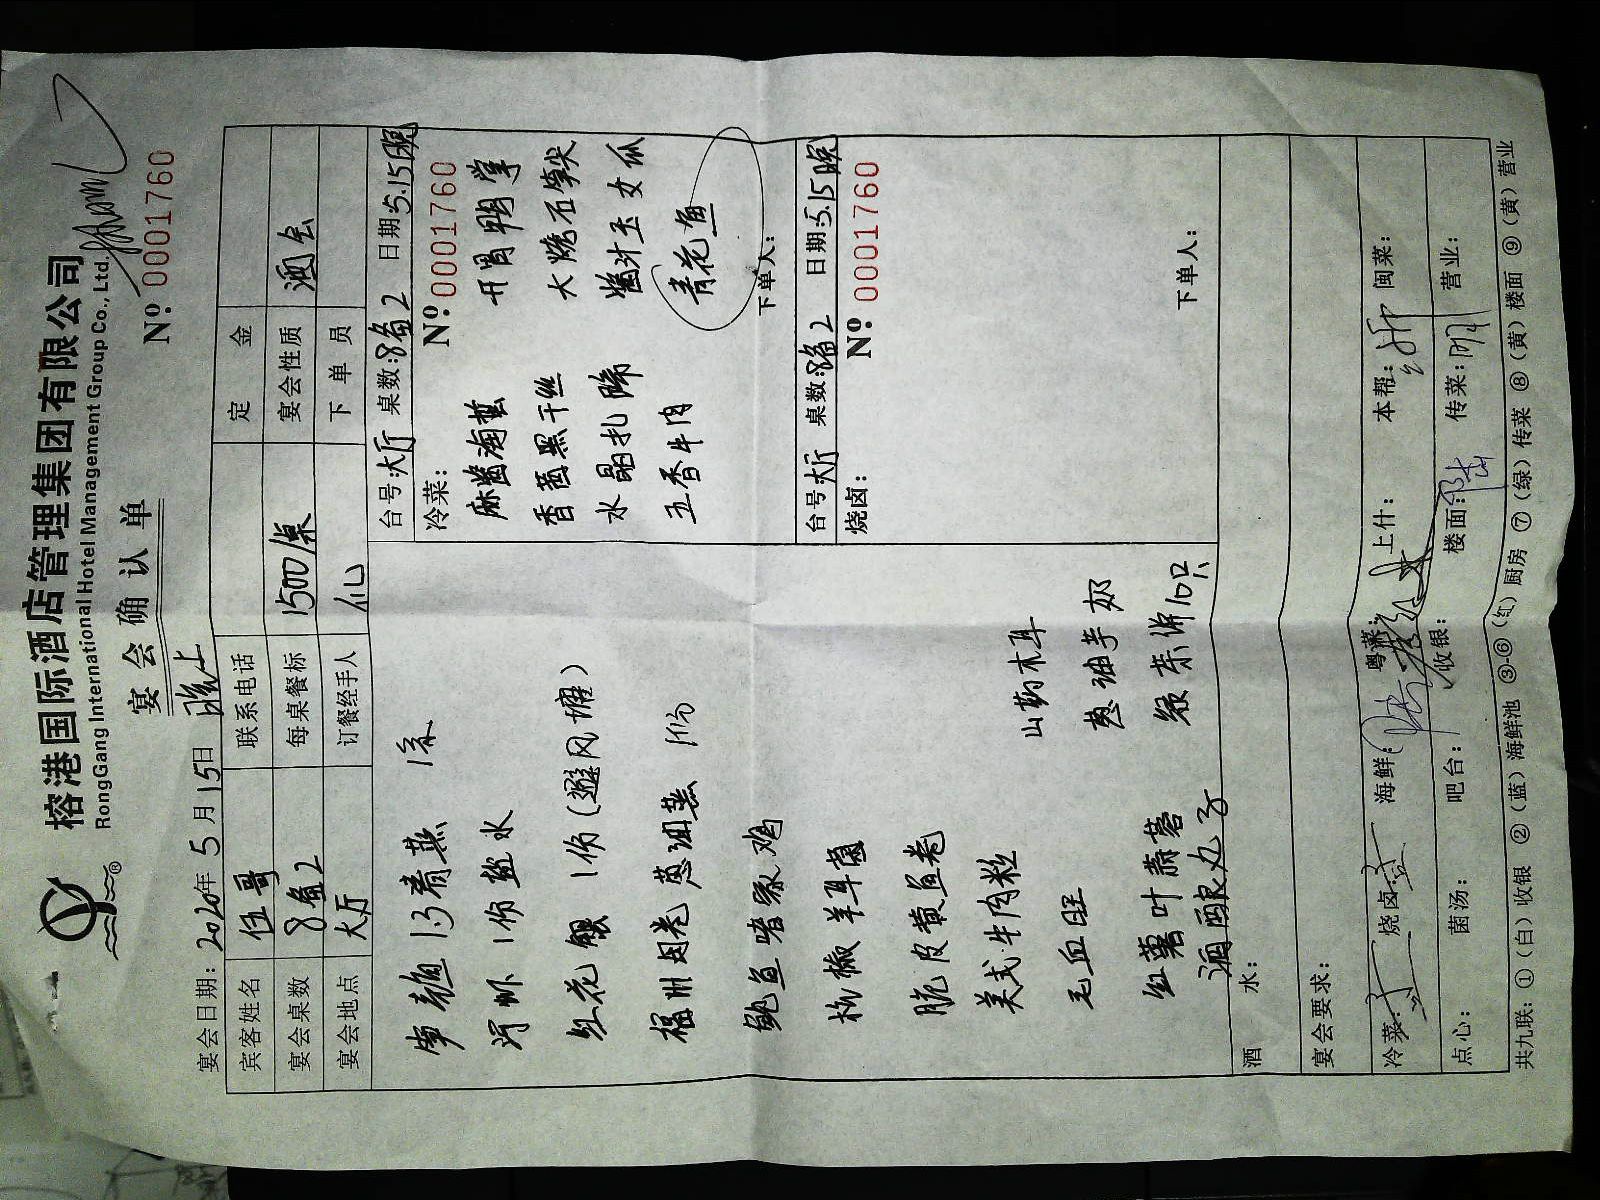 榕港国际酒店管理集团有限公司
RongGang International Hotel Management Group Co., Ltd.
宴会确认单
Nº 0001760
宴会日期: 2020年5月15日 晚上
宾客姓名 伍哥 联系电话 定金
宴会桌数 8备2 每桌餐标 1500/桌 宴会性质 酒会
宴会地点 大厅 订餐经手人 下单员
台号:大厅 桌数:8备2 日期:5.15晚
冷菜: Nº 0001760
麻酱海蜇 开胃鸭掌
香茜黑干丝 大烧石笋尖
水晶扎蹄 酱汁玉女瓜
五香牛肉 青花鱼
下单人:
台号:大厅 桌数:8备2 日期:5.15晚
烧卤: Nº 0001760
下单人:
1份盐水
红花 1份(避风塘)
葱油蒸 1份
鲍鱼
羊耳菌
脆皮黄鱼卷
美式牛肉粒 山药木耳
毛血旺 葱油芋艿
红薯叶 蒜蓉 10只
丸子
酒水:
宴会要求:
冷菜: 烧卤: 海鲜: 粤菜: 上什: 本帮: 闽菜:
点心: 菌汤: 吧台: 收银: 楼面: 传菜: 营业:
共九联: ①(白)收银 ②(蓝)海鲜池 ③-⑥(红)厨房 ⑦(绿)传菜 ⑧(黄)楼面 ⑨(黄)营业